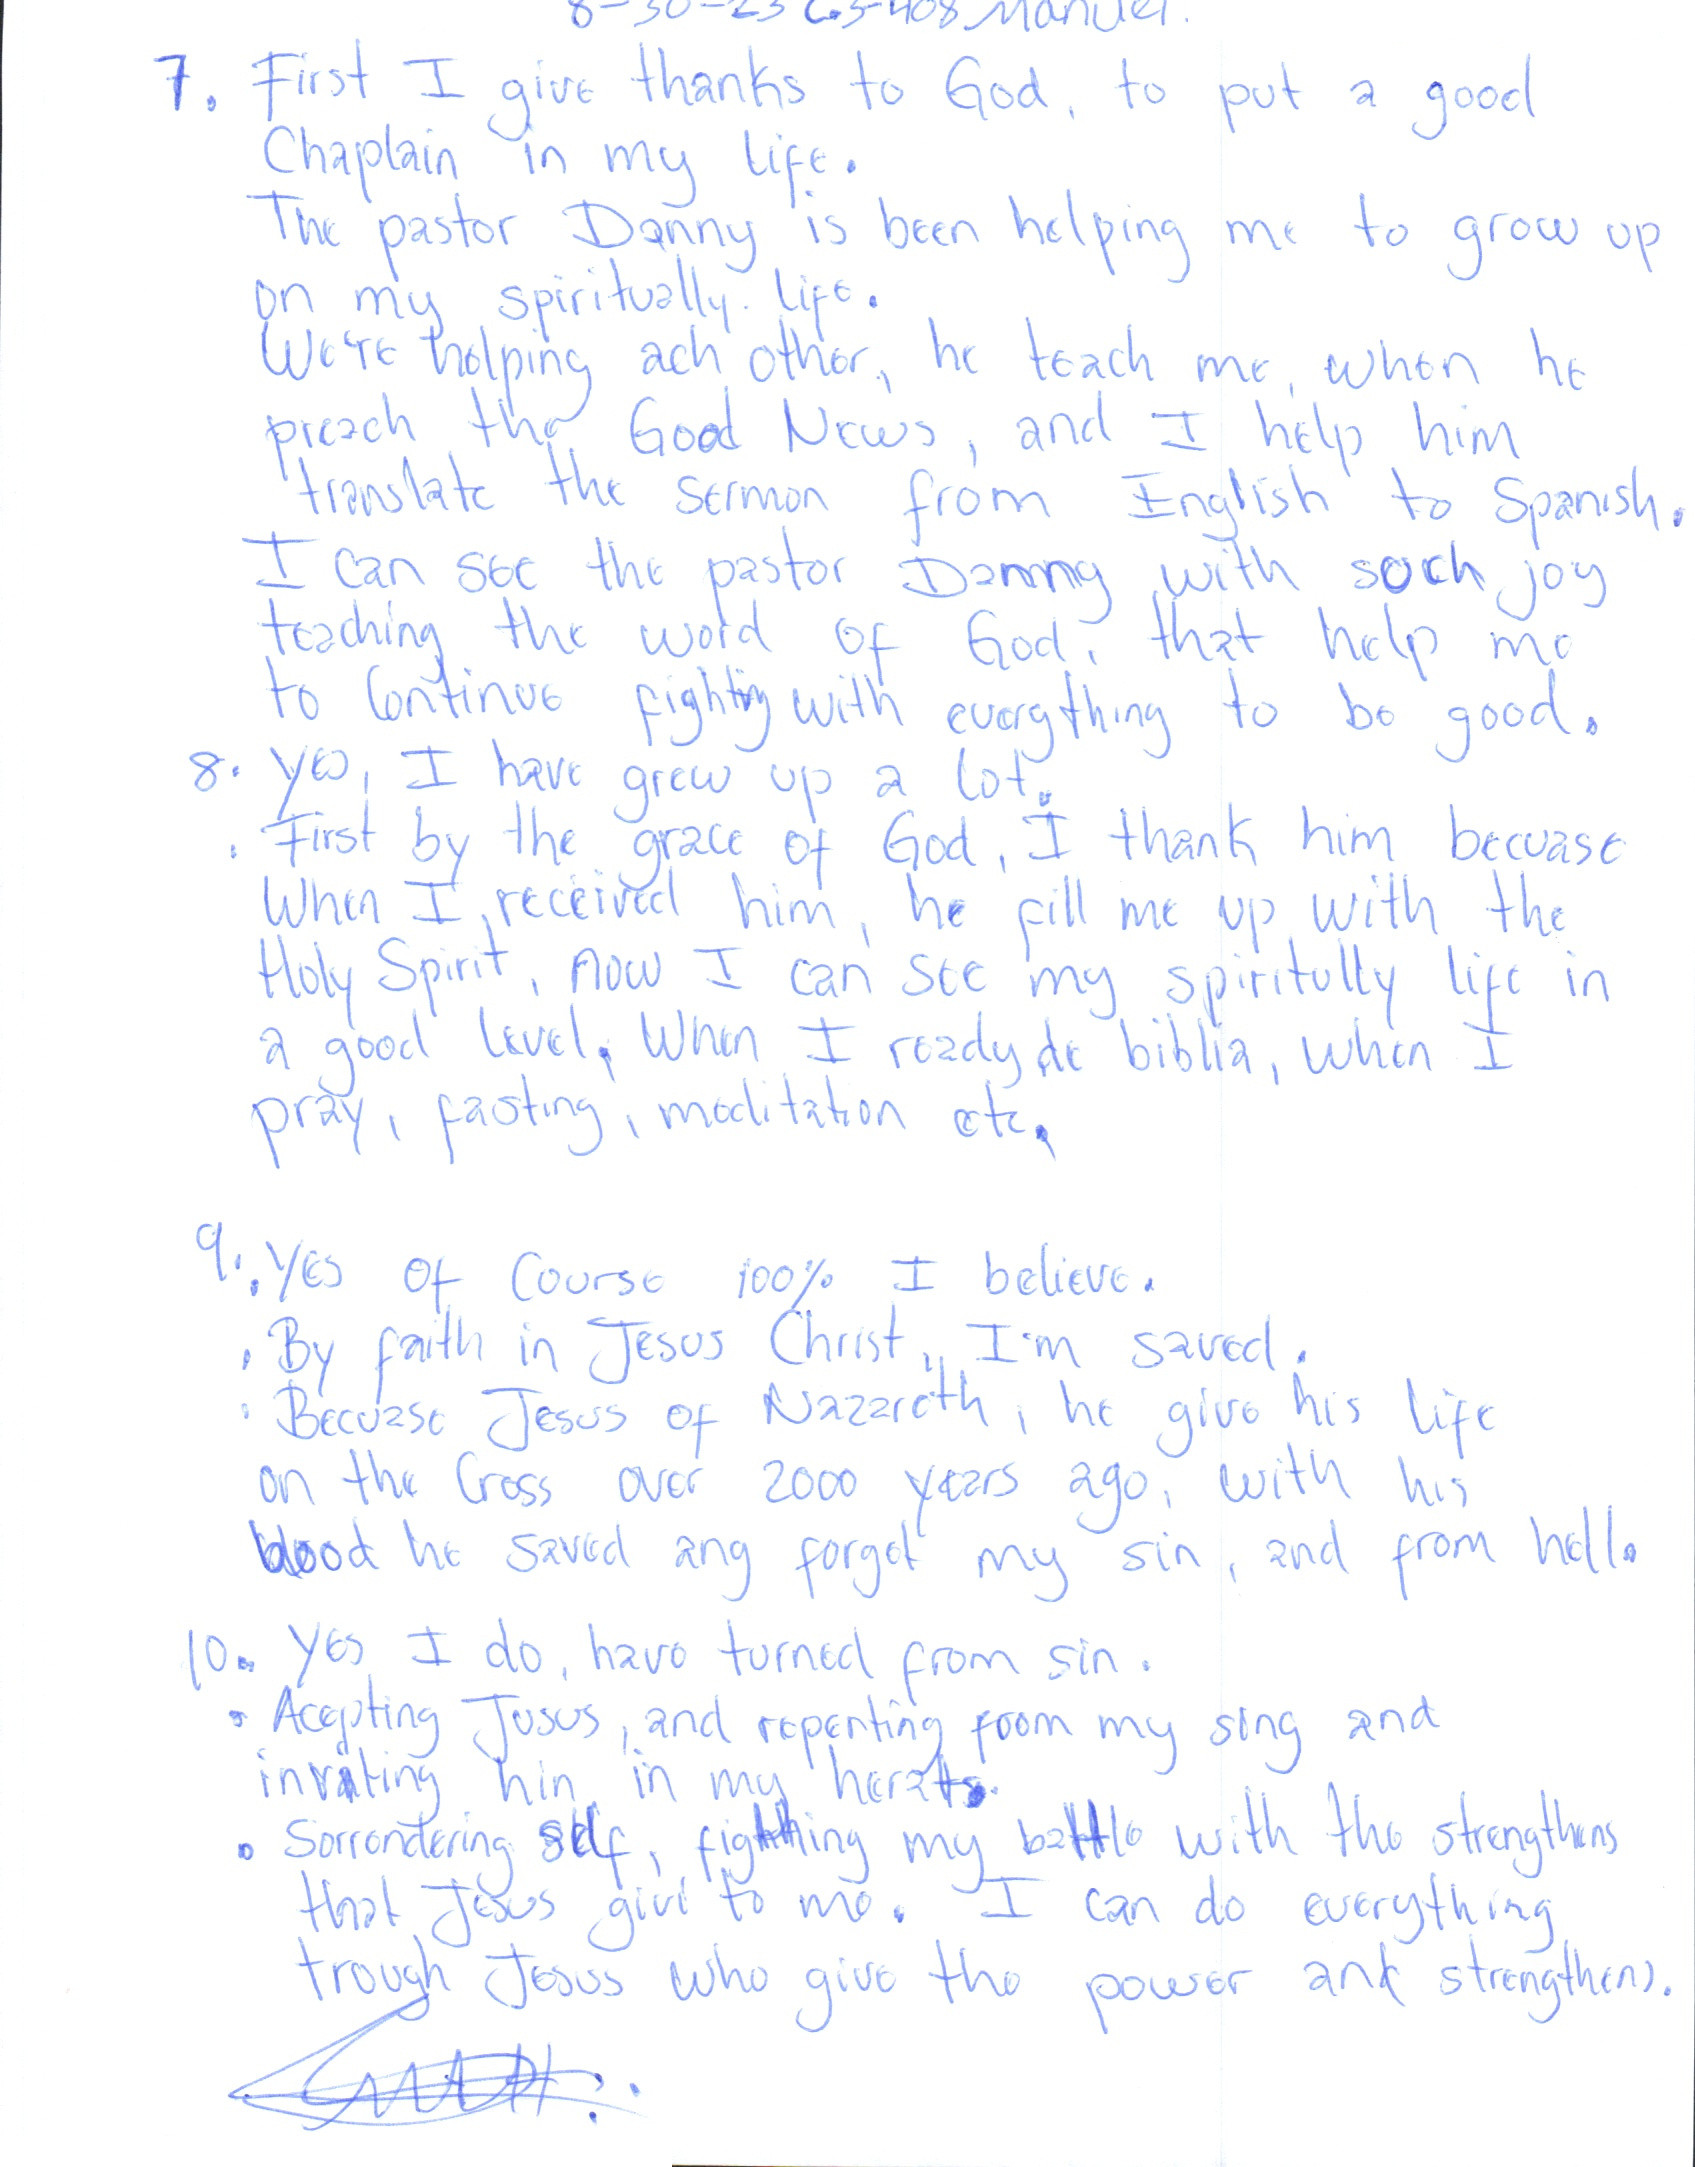 8-30-23 G3-408 Manuel.
7. First I give thanks to God, to put a good
Chaplain in my life.
The pastor Danny is been helping me to grow up
on my spiritually. life.
We're helping ach other, he teach me, when he
preach the Good News, and I help him
translate the sermon from English to Spanish.
I can see the pastor Danny with such joy
teaching the word of God, that help me
to continue fighting with everything to be good.
8. Yes, I have grew up a lot.
. First by the grace of God, I thank him becuase
When I received him, he fill me up with the
Holy Spirit, now I can see my spiritully life in
a good level. When I ready de biblia, when I
pray, fasting, meditation etc.
9. . Yes of Course 100% I believe.
. By faith in Jesus Christ, I'm saved.
. Becuase Jesus of Nazareth, he give his life
on the Cross over 2000 years ago, with his
blood he saved ang forget my sin, and from hell.
10. Yes I do, have turned from sin.
• Acepting Jesus, and repenting from my sing and
inviting hin in my herats.
• Sorrendering self, fighthing my battle with the strengthens
that Jesus give to me. I can do everything
trough Jesus who give the power ank strengthens.